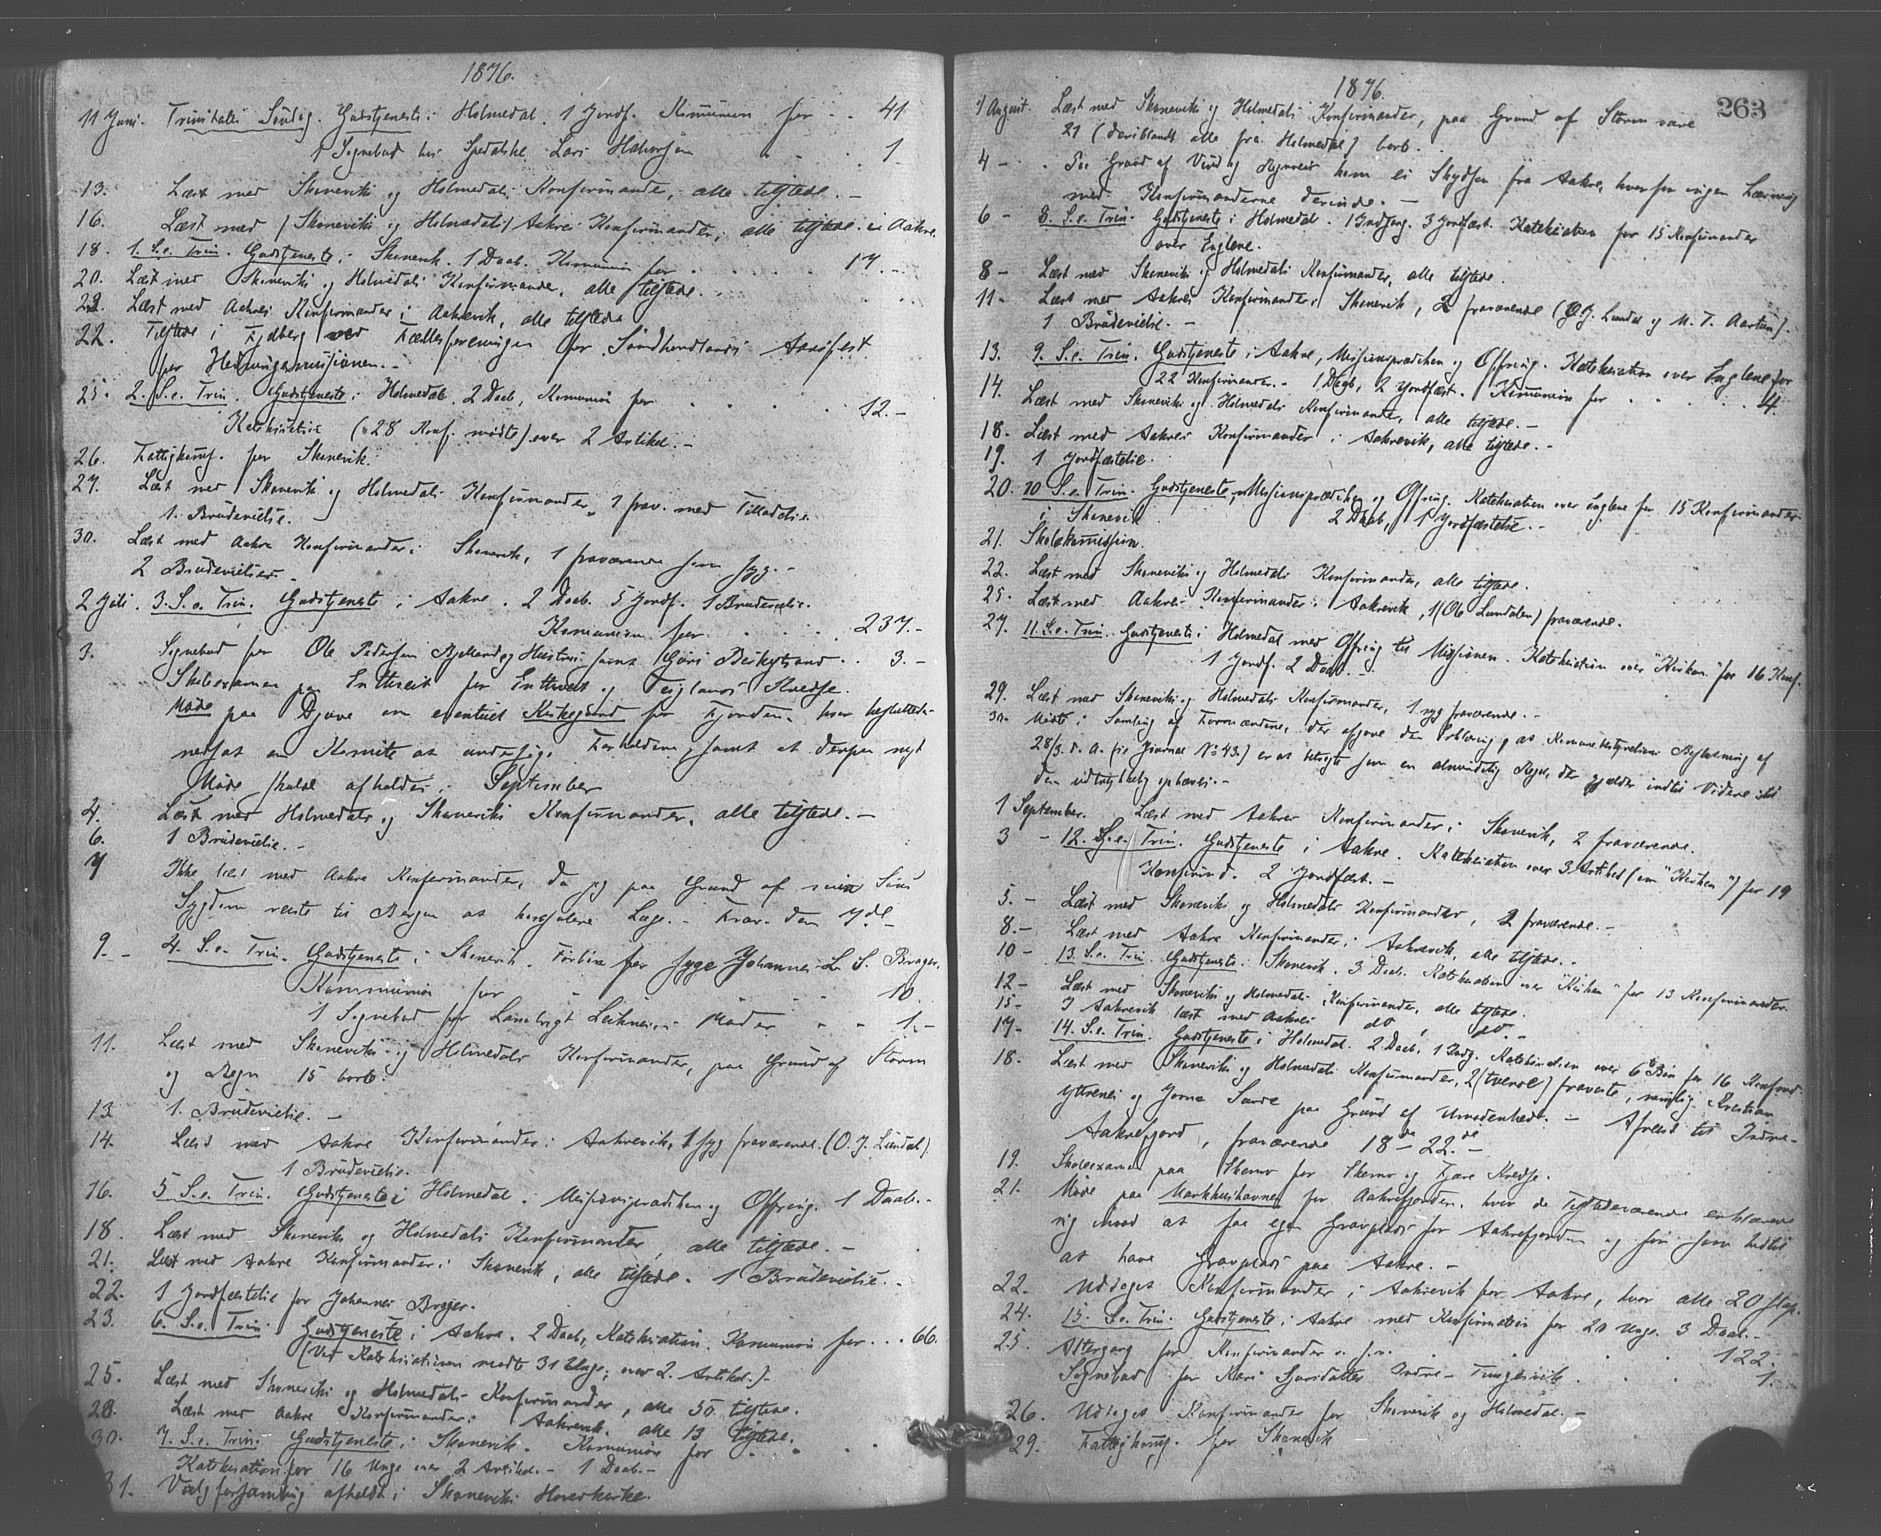 1876.
11 Juni. Trinitatis Søndag. Gudstjeneste i Holmedal. 1 Jordf. Kommunion for . . 41.
1 Sognebud hos Spedalske Lars Halvorsen . . . 1.
13. Læst med Skonevik og Holmedals Konfirmander, alle tilstede. —
16. Læst med (Skonevik og Holmedals) Aakres Konfirmander, alle tilstede i Aakre.
18. 1. S. e. Trin. Gudstjeneste i Skonevik. 1 Daab. Kommunion for . . . . 17. –
20. Læst med Skonevik og Holmedals Konfirmander, alle tilstede.
Læst med Aakres Konfirmander i Aakrevik, alle tilstede
22. Tilstede i Fjelberg ved Fællesforeningen for Søndhordlands Aarsfest
for Hedningemissionen. –
25. 2. S. e. Trin. Gudstjeneste i Holmedal. 2 Daab, Kommunion for . . . . 12. –
Katekisation (28 Konf. mødte) over 2 Artikel. –
26. Fattigkomm. for Skonevik.
27. Læst med Skonevik og Holmedals Konfirmander, 1 frav. med Tilladelse.
1. Brudevielse.
30. Læst med Aakre Konfirmander i Skonevik, 1 fraværende som syg. –
2 Brudevielser. –
2 Juli. 3. S. e. Trin. Gudstjeneste i Aakre. 2 Daab. 5 Jordf. 1 Brudevielse.
Kommunion for . . . . . 237. –
3. Sognebud for Ole Pedersen og Hustru samt . . 3. –
Skoleexamen paa for og Teiglands Kredse.
Møde paa Djøve om eventuel Kirkegaard for Fjorden, hvor
nedsat en Komite at undersøge Forholdene, samt at derpaa nyt
Møde skulde afholdes i September
4. Læst med Holmedals og Skoneviks Konfirmander, alle tilstede. —
6. 1 Brudevielse. –
7 Ikke læst med Aakre Konfirmander, da jeg paa Grund af min
Sygdom reiste til Bergen at konsulere Læge. – Frav. den 7de –
9. – 4. S. e. Trin. Gudstjeneste i Skonevik. Forbøn for syge Johannes L. S. Brager.
Kommunion for . . . . 10.
1 Sognebud for Moder . . 1. –
11. Læst med Skoneviks og Holmedals Konfirmander, paa Grund af Storm
og Regn 15 borte.
13. 1. Brudevielse. –
14. Læst med Aakre Konfirmander i Aakrevik, 1 syg fraværende. (O. J. Lundal).
1 Brudevielse.
16. 5 S. e. Trin. Gudstjeneste i Holmedal. Missionsprædiken og Offring. 1 Daab. –
18. Læst med Skonevik og Holmedals Konfirmander, alle tilstede. –
21. Læst med Aakre Konfirmander i Skonevik, alle tilstede. 1 Brudevielse. –
22. 1 Jordfæstelse for Johannes Brager.
23. 6. S. e. Trin. Gudstjeneste i Aakre. 2 Daab, Katekisation. Kommunion for . . . 66.
(Ved Katekisationen mødte 31 Unge, over 2. Artikel.) –
25. Læst med Skonevik og Holmedals Konfirmander, alle 50 tilstede.
28. Læst med Aakre Konfirmander i Aakrevik, alle 13 tilstede.
30. 7. S. e. Trin. Gudstjeneste i Skonevik. Kommunion for . . .
Katekisation for 16 Unge over 2 Artikel. – 1 Daab. –
31. Valgforsamling afholdt i Skoneviks Hovedkirke.
1876.
263
1 August. Læst med Skoneviks og Holmedals Konfirmander, paa Grund af Storm vare
21 (deriblandt alle fra Holmedal) borte.
4 – Paa Grund af Vind og Regnveir kom ei Skydsen fra Aakre, hvorfor ingen Læsning
med Konfirmanderne derinde. –
6 – 8. S. e. Trin. Gudstjeneste i Holmedal. 1 Indgang. 3 Jordfæst. Katekisation for 15 Konfirmander
over Englene.
8 – Læst med Skoneviks og Holmedals Konfirmander, alle tilstede.
11. Læst med Aakres Konfirmander i Skonevik, 2 fraværende (O. J. Lundal og M. T. Aartun).
1 Brudevielse. –
13. 9. S. e. Trin. Gudstjeneste i Aakre, Missionsprædiken og Offring. Katekisation over Englene for
22 Konfirmander. – 1 Daab, 2 Jordfæst. Kommunion for . . . . 4.
14. Læst med Skoneviks og Holmedals Konfirmander, alle tilstede. –
18. Læst med Aakres Konfirmander i Aakrevik, alle tilstede. –
19. 1 Jordfæstelse.
20. 10 S. e. Trin. Gudstjeneste, Missionsprædiken og Offring. Katekisation over Englene for 15 Konfirmander
i Skonevik 2 Daab, 1 Jordfæstelse. –
21. Skolekommission.
22. Læst med Skoneviks og Holmedals Konfirmander, alle tilstede.
25. Læst med Aakres Konfirmander i Aakrevik, 1 (Ole Lundalen) fraværende.
27. 11. S. e. Trin. Gudstjeneste i Holmedal med Offring til Missionen. Katekisation over "Kirken" for 16 Konf.
1 Jordf. 2 Daab. –
29. Læst med Skoneviks og Holmedals Konfirmander, 1 syg fraværende. –
30. Mødte i Samling af Formændene, der afgave den Erklæring, at Kommunebestyrelsens Beslutning af
28/3 d. A. (se Journal No 43.) er at betragte som en almindelig Regel, der gjælder indtil Videre
den udtrykkelig ophæves. –
1 September. Læst med Aakres Konfirmander i Skonevik, 2 fraværende.
3 – 12. S. e. Trin. Gudstjeneste i Aakre. Katekisation over 3 Artikel (om "Kirken") for 19
Konfirmd. 2 Jordfæst. –
5. – Læst med Skoneviks og Holmedals Konfirmander, 2 fraværende. –
8. – Læst med Aakre Konfirmander i Aakrevik, alle tilstede. –
10 – 13. S. e. Trin. Gudstjeneste i Skonevik. 3 Daab. Katekisation over "Kirken" for 13 Konfirmander.
12 – Læst med Skoneviks og Holmedals Konfirmander, alle tilstede.
15 – I Aakrevik læst med Aakres do, do. –
17 – 14. S. e. Trin. Gudstjeneste i Holmedal. 2 Daab, 1 Indg. Katekisation over 6te Bøn for 16 Konfirmd.
18. Læst med Skoneviks og Holmedals Konfirmander, 2 (tvende) fraværende, nemlig Kristian
og Jorna Sande paa Grund af Umodenhed. – Afreist til Indre-
Aakrefjord, fraværende 18de – 22de. –
19. Skoleexamen paa Skarvo for Skarvo og Fjære Kredse.
21. Møde paa Markhushavnen for Aakrefjorden, hvor de Tilstedeværende erklærede
sig imod at faa egen Gravplads for Aakrefjorden og for som hidtil
at have Gravplads paa Aakre. –
22. Udtoges Konfirmander i Aakrevik for Aakre, hvor alle 20
24. 15. S. e. Trin. Gudstjeneste i Aakre med Konfirmation for 20 Unge. 3 Daab. –
25. Altergang for Konfirmander o. fl. . . . 122.
Sognebud for Kari Sjursdatter Indre- . . . 1.
26. Udtoges Konfirmander for Skonevik og Holmedal. –
29. Fattigkomm. for Skonevik